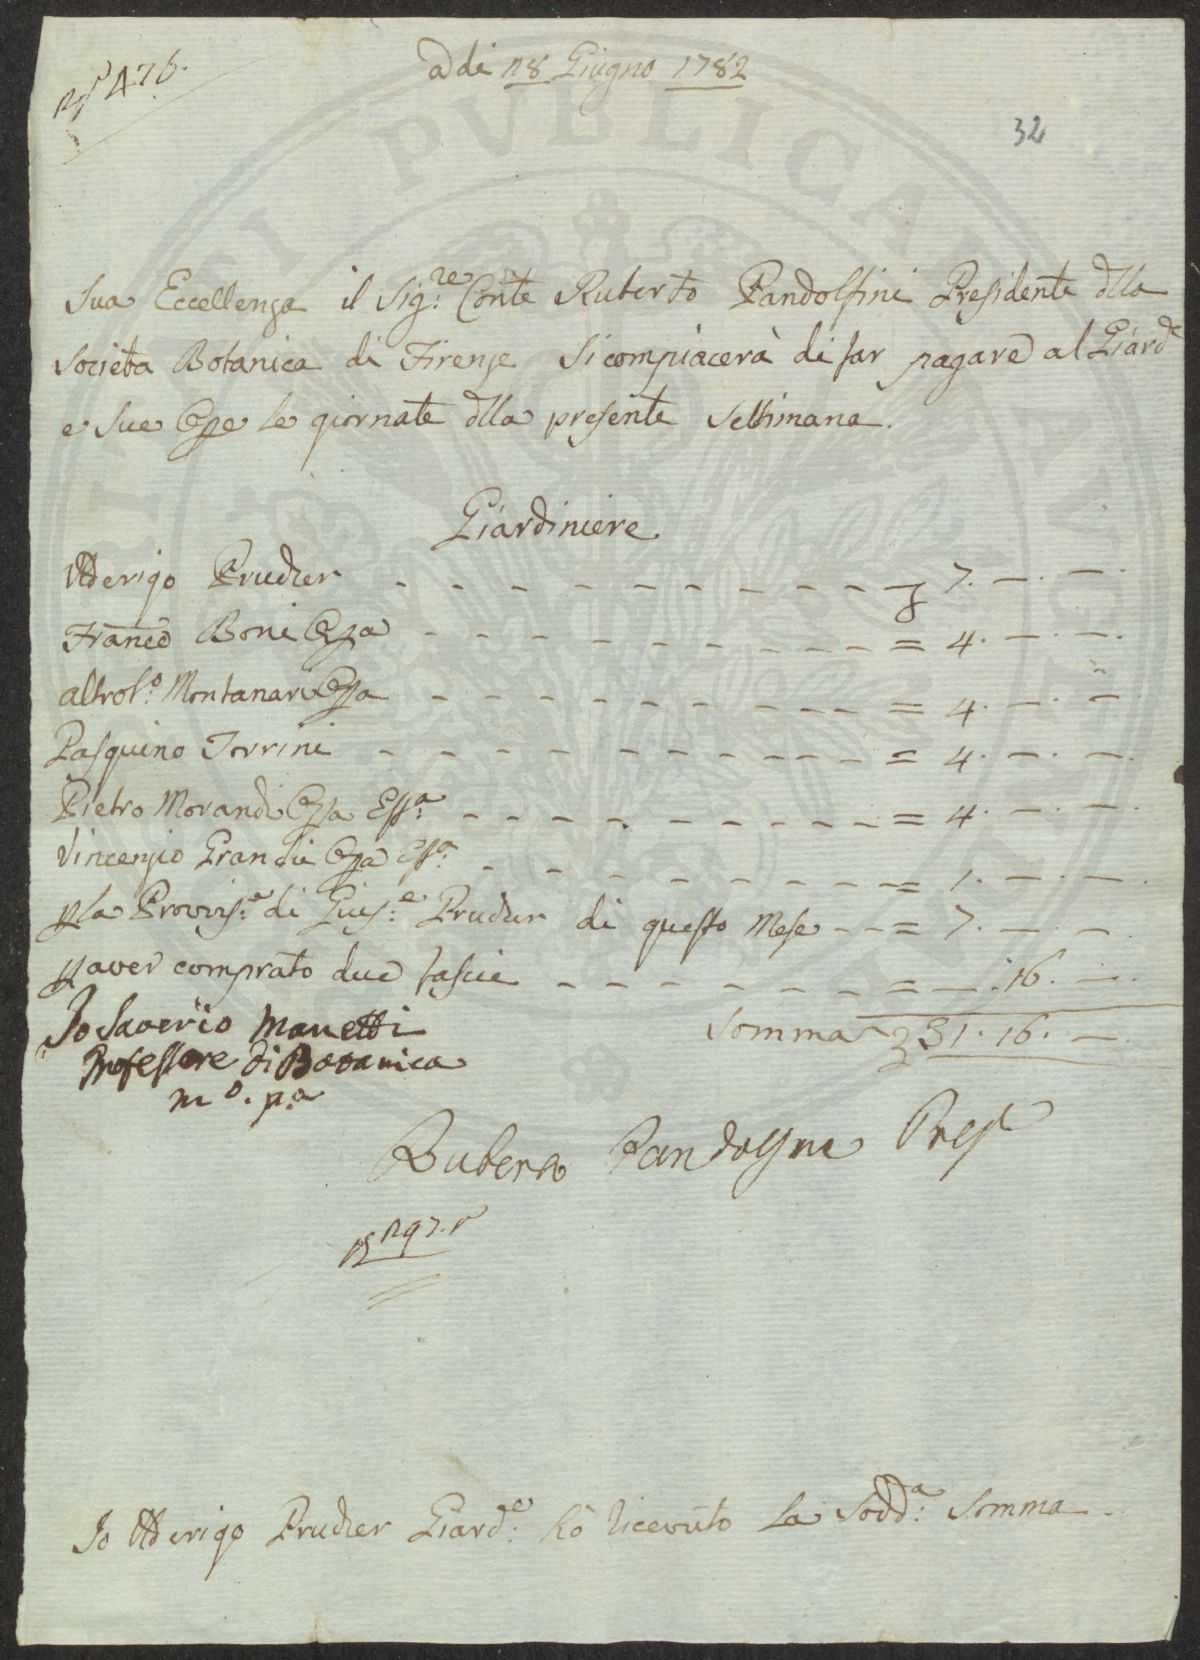 a di 18 Giugno 1782
N.º 476.
32
Sua Eccellenza il Sig:re Conte Ruberto Pandolfini Presidente dlla
Societa Botanica di Firenze Si compiacerà di far pagare al Giard.e
e Sue Ope le giornate dlla presente Settimana.
Giardiniere
Atterigo Prucker 7. — . — .
Franco Boni Opa = 4. — . — .
altro S.º Montanari Opa = 4. — . —
Pasquino Torrini = 4. — . — .
Pietro Morandi Opa Essa = 4. — . — .
Vincenzio Grandi Opa Essa = 1. — . — .
p la Provvis:e di Gius:e Prucker di questo Mese = 7. — . —
p aver comprato due fascie = — . 16. —
Somma 31. 16. —
Jo Saverio Manetti
Professore di Botanica
m.o p.a
Ruberto Pandolfini Pres
Jo Atterigo Prucker Giard:e hò ricevuto La Sodd:a Somma.